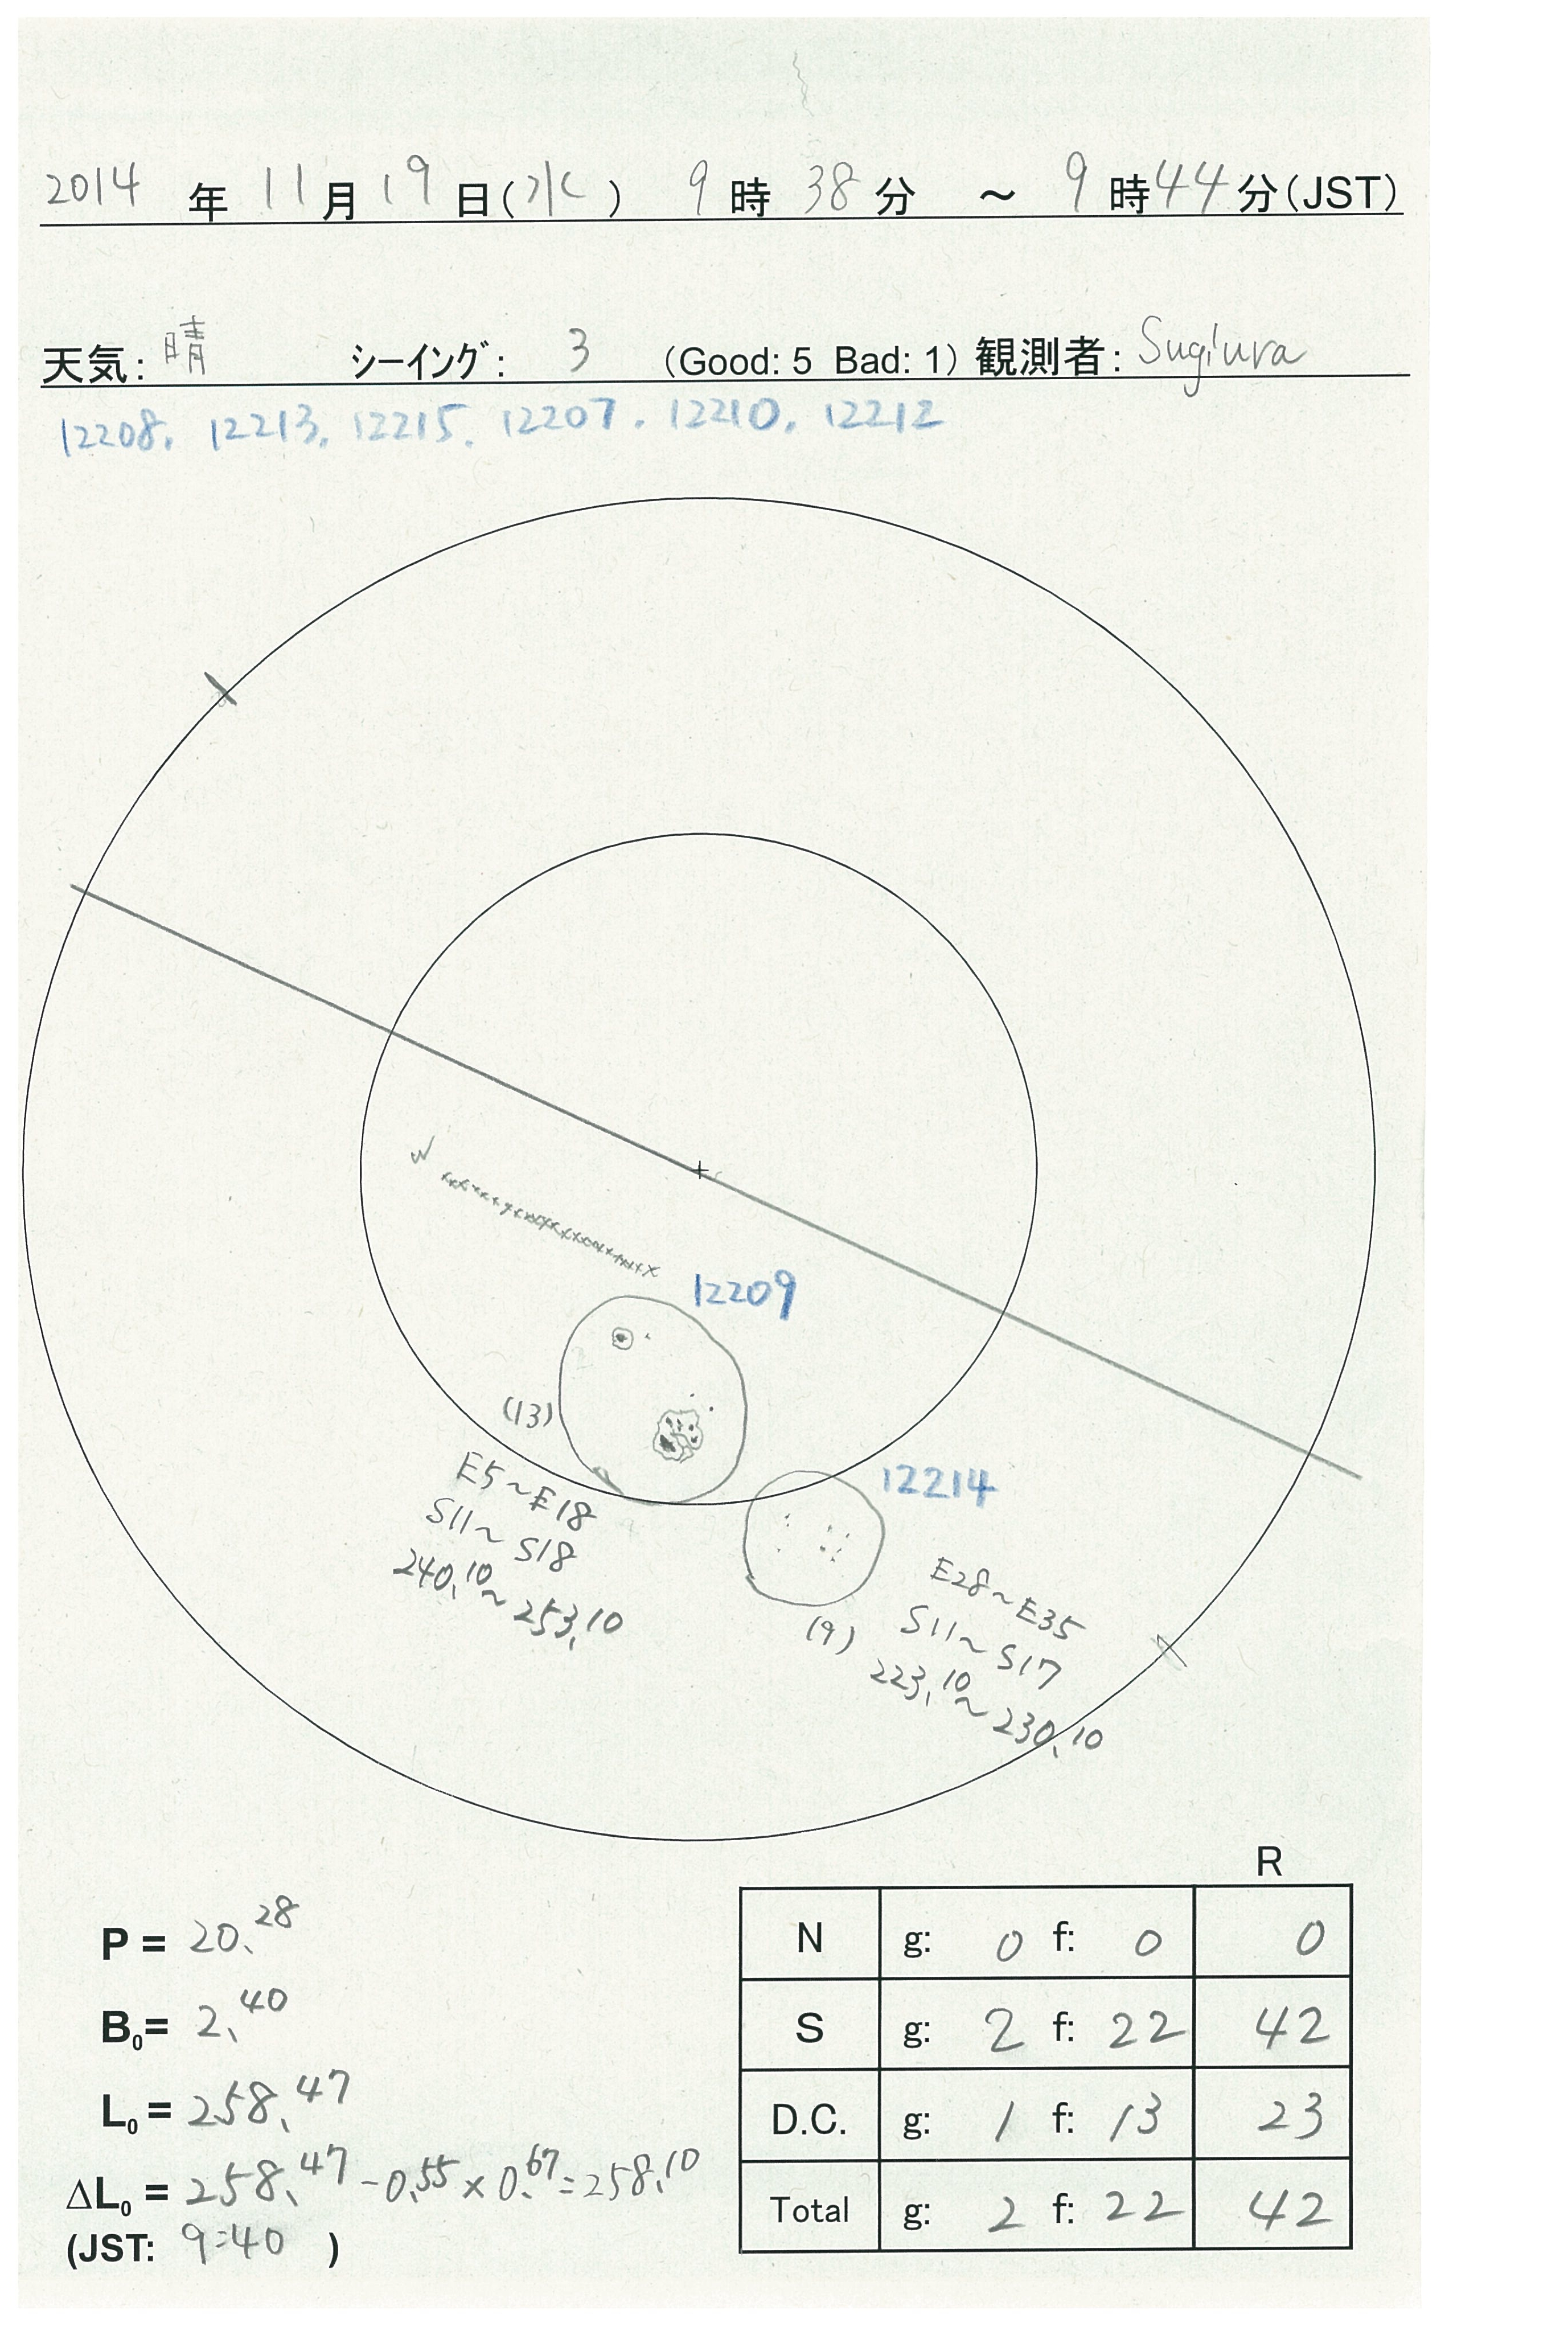 2014 年 11 月 19 日(水) 9 時 38 分 ～ 9 時 44 分(JST)
天気: 晴 シーイング: 3 (Good: 5 Bad: 1) 観測者: Sugiura
12208. 12213. 12215. 12207. 12210. 12212
W
12209
(13)
E5~E18
S11~S18
240.10~253.10
12214
(9)
E28~E35
S11~S17
223.10~230.10
P = 20.28
B0= 2.40
L0= 258.47
ΔL0 = 258.47-0.55×0.67=258.10
(JST: 9:40 )
R
N g: 0 f: 0 0
S g: 2 f: 22 42
D.C. g: 1 f: 13 23
Total g: 2 f: 22 42